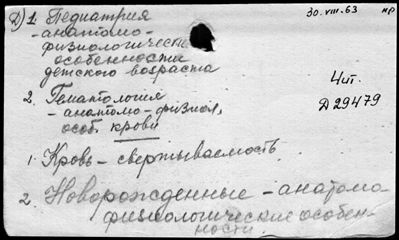 2) 1. Педиатрия
30.VIII.63 нр
- анатомо-
физиологически
особенности
детского возраста
Чит.
Д29479
2. Гематология
- анатомо-физиол.
особ. крови
1. Кровь - свертываемость.
2. Новорожденные - анатомо
физиологические особен-
ности.